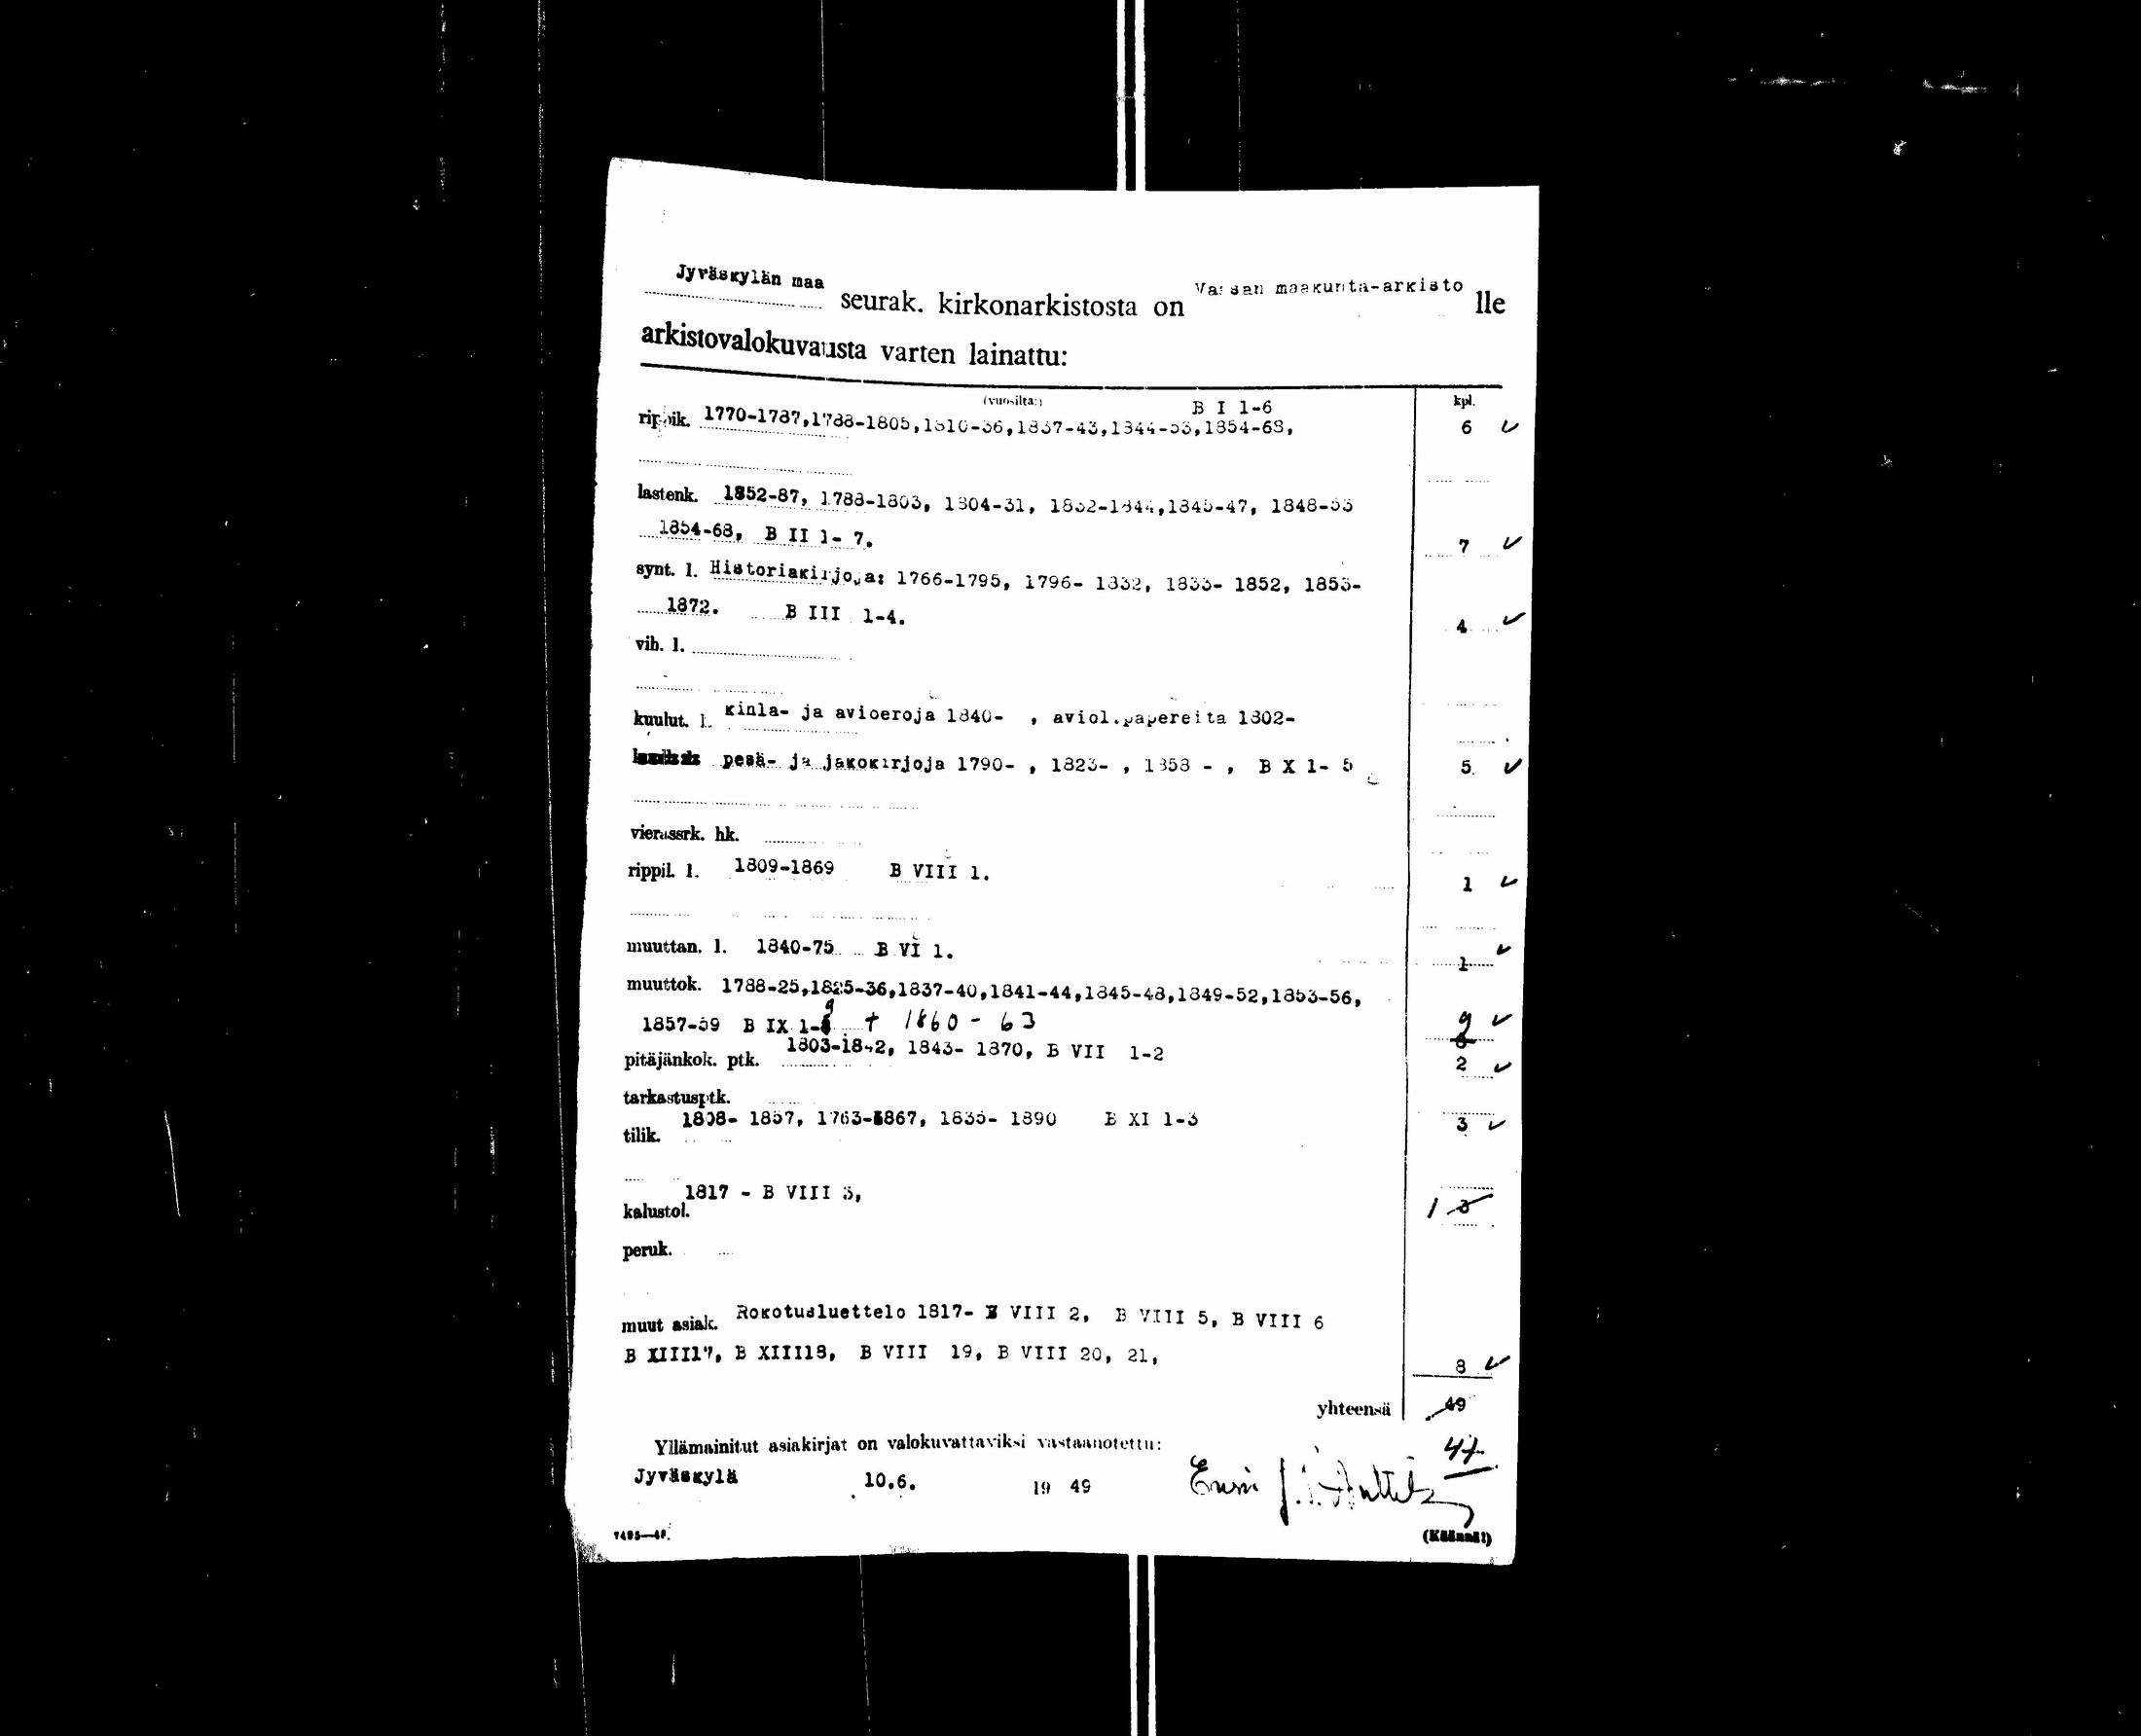 Jyväskylän maa seurak. kirkonarkistosta on Vaasan maakunta-arkisto lle
arkistovalokuvausta varten lainattu:
(vuosilta:) B I 1-6 kpl.
rippik. 1770-1787,1788-1805,1810-36,1837-43,1844-53,1854-68, 6 ✓
lastenk. 1852-87, 1788-1803, 1804-31, 1832-1844,1845-47, 1848-53
1854-68, B II 1- 7. 7 ✓
synt. l. Historiakirjoja: 1766-1795, 1796- 1832, 1833- 1852, 1853-
1872. B III 1-4. 4 ✓
vih. l.
kuulut. l. kihla- ja avioeroja 1840- , aviol.papereita 1802-
pesä- ja jakokirjoja 1790- , 1823- , 1858 - , B X 1- 5 5 ✓
vierassrk. hk.
rippil. l. 1809-1869 B VIII 1. 1 ✓
muuttan. l. 1840-75 B VI 1. 1 ✓
muuttok. 1788-25,1825-36,1837-40,1841-44,1845-48,1849-52,1853-56,
1857-59 B IX 1-9 + 1860 - 63 9 ✓
pitäjänkok. ptk. 1803-1842, 1843- 1870, B VII 1-2 2 ✓
tarkastusptk.
1808- 1857, 1763-1867, 1835- 1890 B XI 1-3 3 ✓
tilik.
1817 - B VIII 3,
kalustol. 1 3
peruk.
muut asiak. Rokotusluettelo 1817- B VIII 2, B VIII 5, B VIII 6
B XIII17, B XIII18, B VIII 19, B VIII 20, 21, 8 ✓
yhteensä 49
47
Yllämainitut asiakirjat on valokuvattaviksi vastaanotettu:
Jyväskylä 10.6. 19 49
(Käännä!)